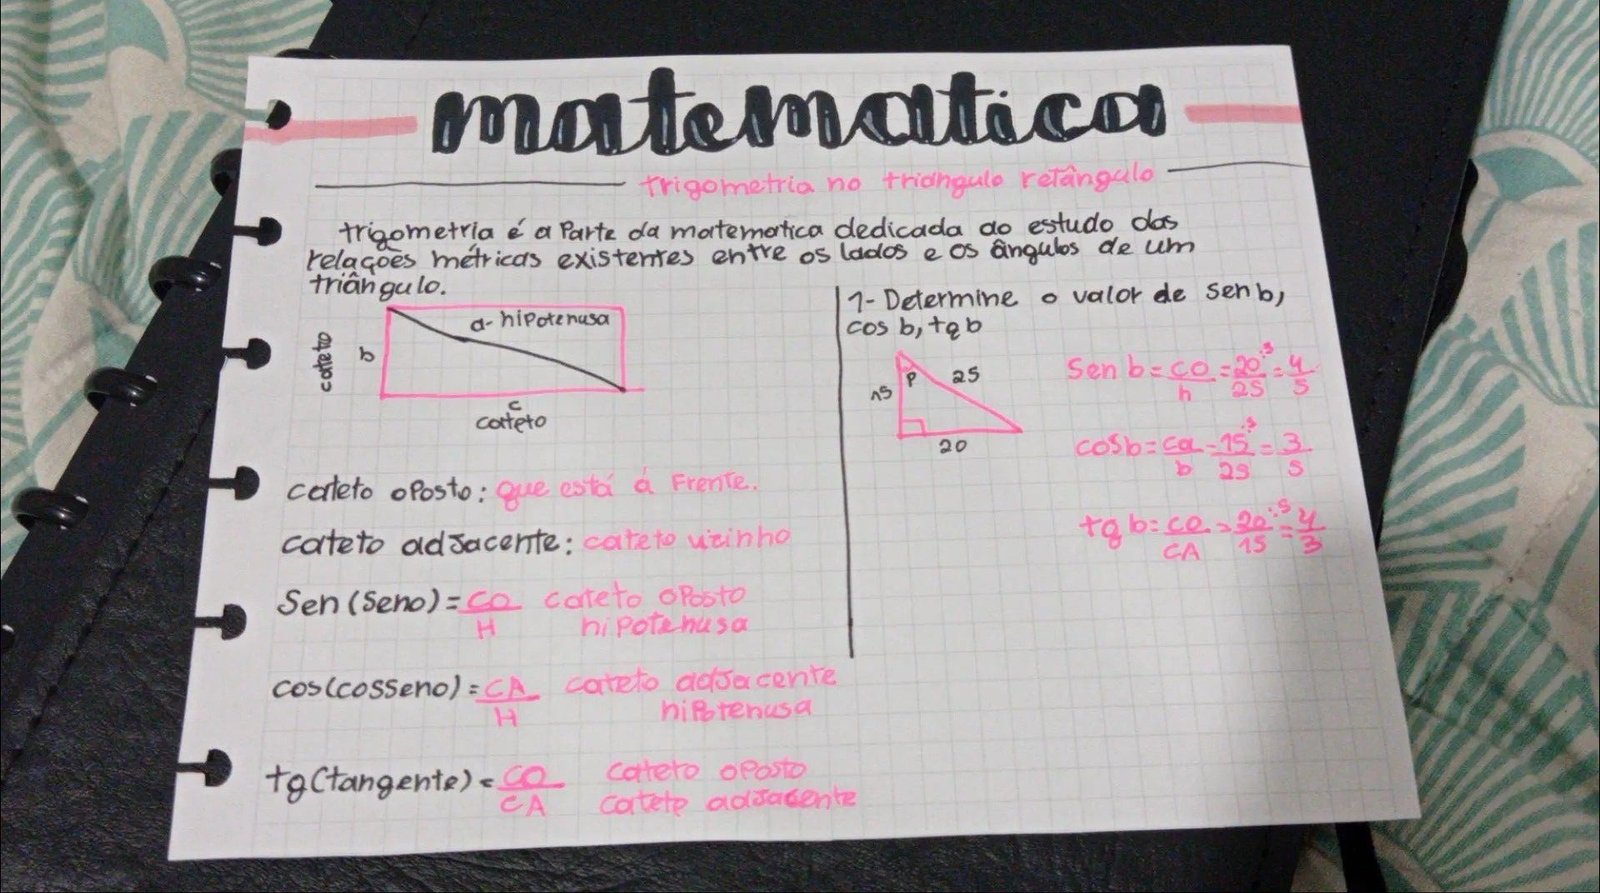 matematica
trigometria no triangulo retângulo
trigometria é a Parte da matematica dedicada ao estudo das
relações métricas existentes entre os lados e os ângulos de um
triângulo.
a- hipotenusa
cateto
b
c
cateto
cateto oPosto: que está á Frente.
cateto adJacente: cateto vizinho
Sen (Seno) = CO cateto oPosto
H hipotenusa
cos(cosseno) = CA cateto adJacente
H hipotenusa
tg(tangente) = CO cateto oPosto
CA catete adJacente
1- Determine o valor de sen b,
cos b, tg b
15
β
25
20
Sen b = co = 20 :5 = 4
h 25 5
cosb = ca = 15 :5 = 3
b 25 5
tg b = co = 20 :5 = 4
CA 15 3